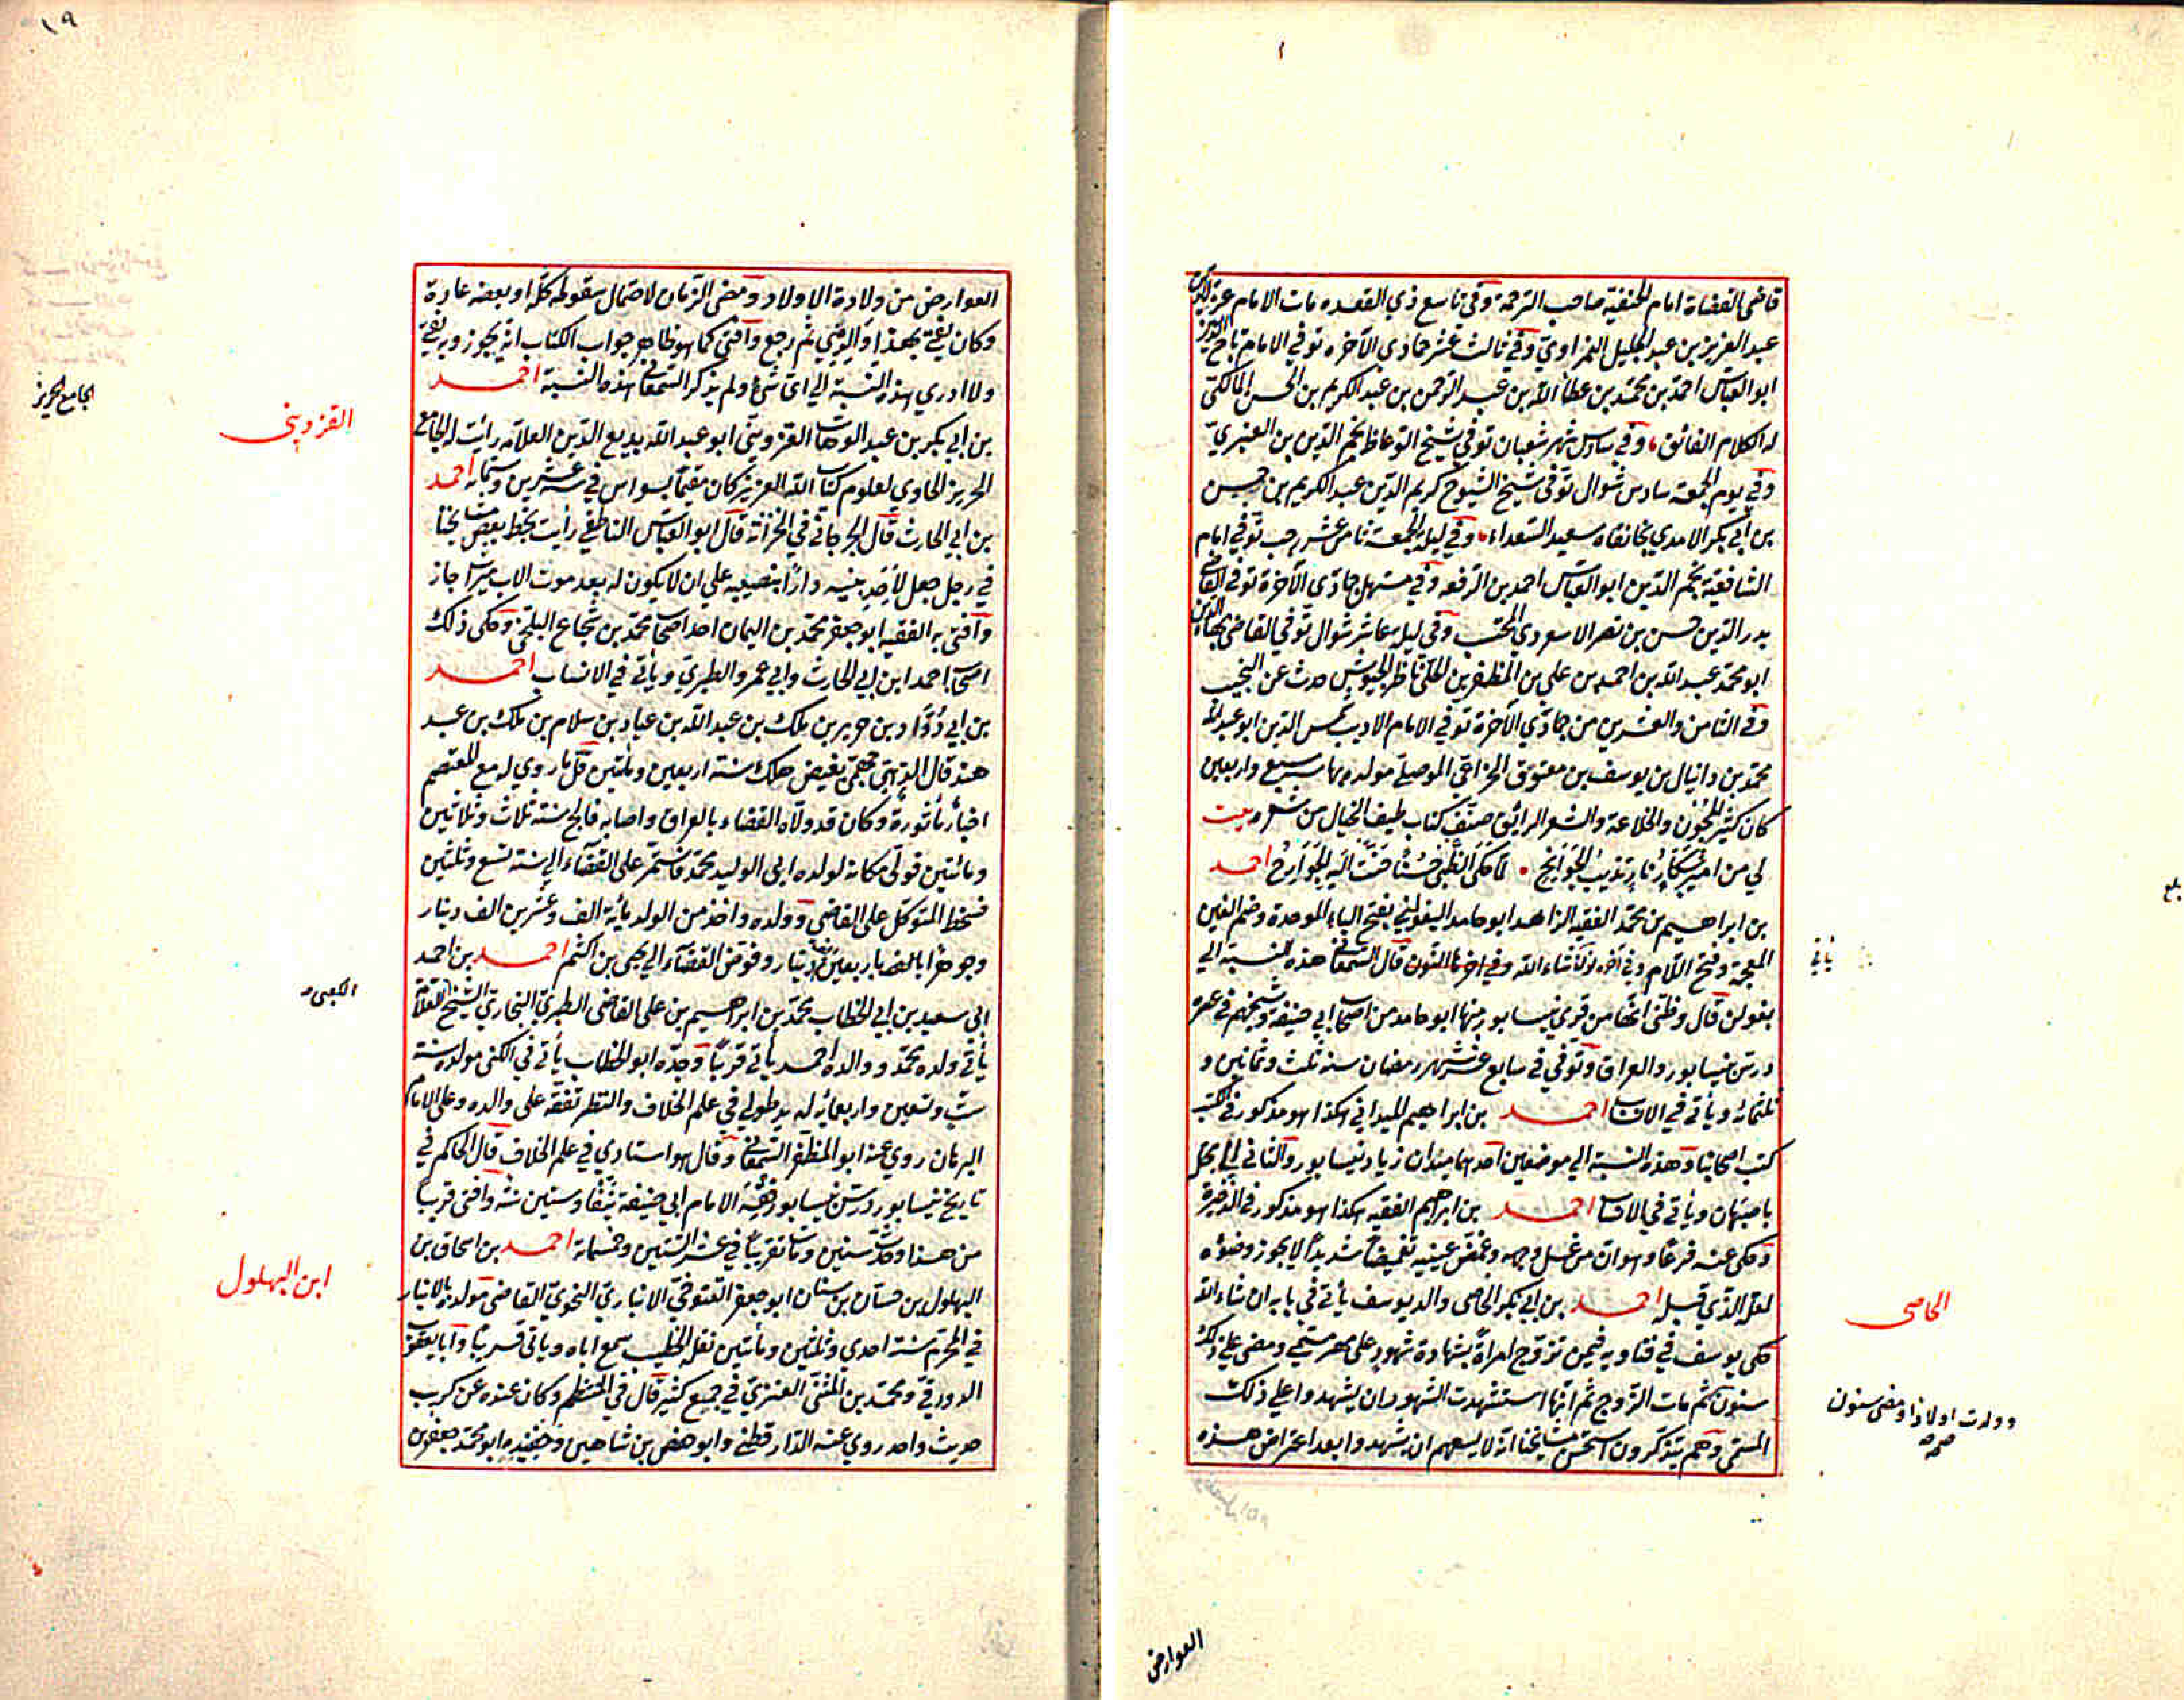 قاضى القضاة امام الحنفية صاحب الترجمة وفى تاسع ذي القعده مات الامام عز الدين
عبد العزيز بن عبد الجليل النمراوي وفي ثالث عشر جمادى الآخره توفي الامام تاج الدين
ابو العباس احمد بن محمد بن عطاء الله بن عبد الرحمن بن عبد الكريم بن الحسن المالكى
له الكلام الفائق، وفي سادس شهر شعبان توفي شيخ الوعاظ نجم الدين بن العنبري
وفي يوم الجمعة سادس شوال توفى شيخ الشيوخ كريم الدين عبد الكريم بن حسين
بن أبي بكر الامدي بخانقاه سعيد السعداء، وفي ليلة الجمعة ثامن عشر رجب توفي امام
الشافعية نجم الدين ابو العباس احمد بن الرفعه وفي مستهل جمادى الآخرة توفى القاضى
بدر الدين حسن بن نصر الاسعودي المحتسب وفى ليلة عاشر شوال توفي القاضى بهاء الدين
ابو محمد عبد الله بن احمد بن علي بن المظفر بن الحلى ناظر الجيوش حدث عن النجيب
وفى الثامن والعشرين من جمادى الآخرة توفي الامام الاديب شمس الدين ابو عبد الله
محمد بن دانيال بن يوسف بن معتوق الخزاعي الموصلي مولده بها سنة سبع واربعين
كان كثير المجون والخلاعة والشعر الرائق صنف كتاب طيف الخيال من شعره بيت
لي من امير شكار نار تذيب الجوانح ٠ لما حكى الظبي حسنا حنت اليه الجوارح احمد
بن ابراهيم بن محمد الفقيه الزاهد ابو حامد البغولني بفتح الباء الموحدة وضم الغين
المعجمة وفتح اللام وفي اخرها النون قال السمعانى هذه النسبة الي
بغولن قال وظنى انها من قرى نيسابور منها ابو حامد من اصحاب ابي حنيفة وشيخهم في عصره
درس بنيسابور والعراق وتوفي في سابع عشر شهر رمضان سنه ثلث وثمانين و
ثلثمائه ويأتي في الانساب احمد بن ابراهيم الميداني هكذا هو مذكور في الكتب
كتب اصحابنا وهذه النسبة الي موضعين احدهما ميدان زياد نيسابور والثاني الي محلة
باصبهان ويأتي في الانساب احمد بن ابراهيم الفقيه هكذا هو مذكور في الذخيرة
وحكى عنه فرعا وهو ان من غسل وجهه وغمض عينيه تغميضا شديدا لا يجوز وضوءه
لعله الذي قبله احمد بن ابي بكر الخاصى والد يوسف يأتي في بابه ان شاء الله
حكى يوسف في فتاويه فيمن تزوج امرأة بشهادة شهود على مهر مسمى ومضى على ذلك
سنون ثم مات الزوج ثم انها استشهدت الشهود ان يشهدوا على ذلك
المسمى وهم يتذكرون استحسن مشايخنا انه لا يسعهم ان يشهدوا بعد اعتراض هذه
يأتي
الخاصى
وولدت اولادا ومضى سنون
صح
العوارض
١٩
العوارض من ولادة الاولاد ومضى الزمان لاحتمال سقوطه كله او بعضه عادة
وكان يفتي بهذا والدي ثم رجع وافتى كما هو ظاهر جواب الكتاب انه يجوز وبه يفتى
ولا ادري هذه النسبة الي اي شئ ولم يذكر السمعانى هذه النسبة احمد
بن ابي بكر بن عبد الوهاب القزويني ابو عبد الله بديع الدين العلامة رأيت له الجامع
الحريز الحاوي لعلوم كتاب الله العزيز كان مقيما بسواس في سنة عشرين وستمائة احمد
بن ابي الحارث قال الجرجانى في الخزانة قال ابو العباس الناطفي رأيت بخط بعض مشايخنا
في رجل جعل لأحد بنيه دارا بنصيبه على ان لا يكون له بعد موت الاب ميراث جاز
وافتى به الفقيه ابو جعفر محمد بن اليمان احد اصحاب محمد بن شجاع البلخى وحكى ذلك
اصحاب احمد ابن ابي الحارث وابي عمرو الطبري ويأتي في الانساب احمد
بن ابي دؤاد بن حرير بن ملك بن عبد الله بن عباد بن سلام بن ملك بن عبد
هند قال الذهبى جهمى بغيض هلك سنة اربعين ومائتين قل ما روي له مع المعتصم
اخبار مأثورة وكان قد ولاه القضاء بالعراق واصابه فالج سنة ثلاث وثلاثين
ومائتين فولى مكانه لولده ابى الوليد محمد فاستمر على القضاء الي سنة تسع وثلثين
فسخط المتوكل على القاضي وولده واخذ من الولد مأية الف وعشرين الف دينار
وجوهرا باربعين الف دينار وفوض القضاء الي يحيى بن اكثم احمد بن احمد
ابي سعيد بن ابي الخطاب محمد بن ابراهيم بن على القاضى الطبري البخاري الشيخ العلامة
يأتي ولده محمد ووالده احمد يأتي قريبا وجده ابو الخطاب يأتي في الكنى مولده سنة
ست وتسعين واربعمائه له يد طولي في علم الخلاف والنظر تفقه على والده وعلى الامام
البرهان روي عنه ابو المظفر السمعانى وقال هو استاذي في علم الخلاف قال الحاكم في
تاريخ نيسابور درس بنيسابور فقه الامام ابي حنيفة نيفا وستين سنة وافتى قريبا
من هذا وحدث سنين ومات تقريبا في عشر الستين وخمسمائة احمد بن اسحاق بن
البهلول بن حسان بن سنان ابو جعفر التنوخي الانباري النحوي القاضى مولده بالانبار
في المحرم سنة احدي وثلثين ومأتين نقله الخطيب سمع اباه ويأتى قريبا وابا يعقوب
الدورقي ومحمد بن المثنى العنزي في جميع كثير قال في المنتظم وكان عنده عن كريب
حديث واحد روي عنه الدارقطني وابو حفص بن شاهين وحفيده ابو محمد جعفر بن
الجامع الحريز
القزوينى
الكعبى
ابن البهلول